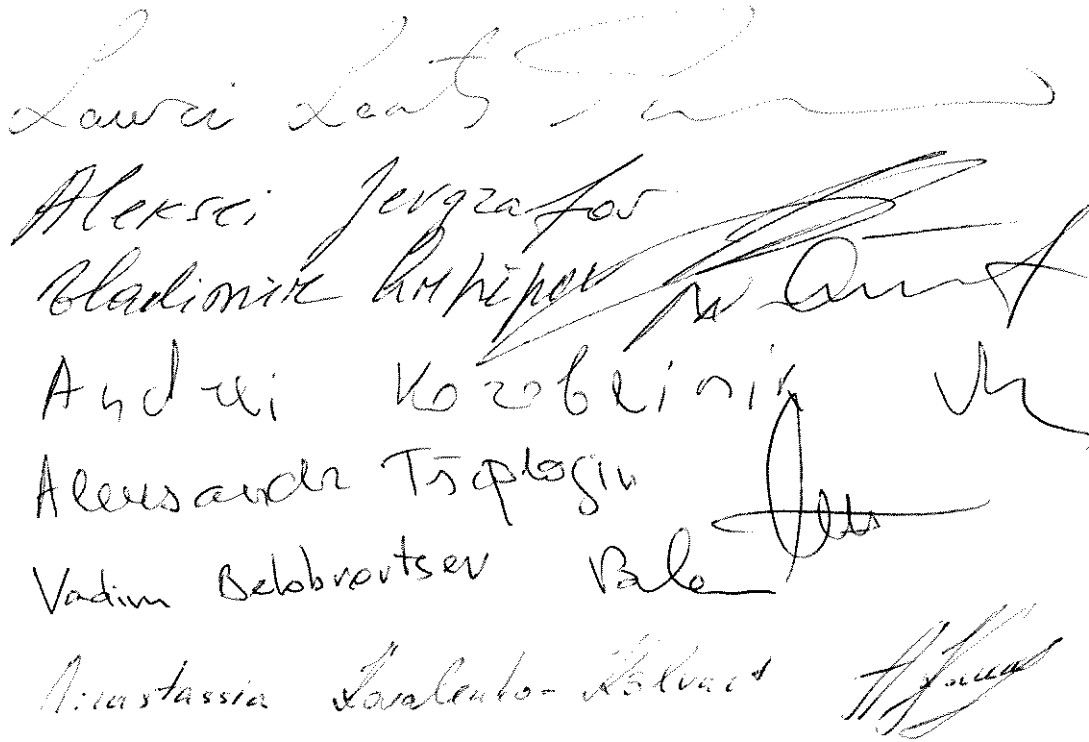 Lauri Laats
Aleksei Jevgrafov
Vladimir Arhipov
Andrei Korobeinik
Aleksandr Tšaplõgin
Vadim Belobrovtsev
Anastassia Kovalenko-Kõlvart